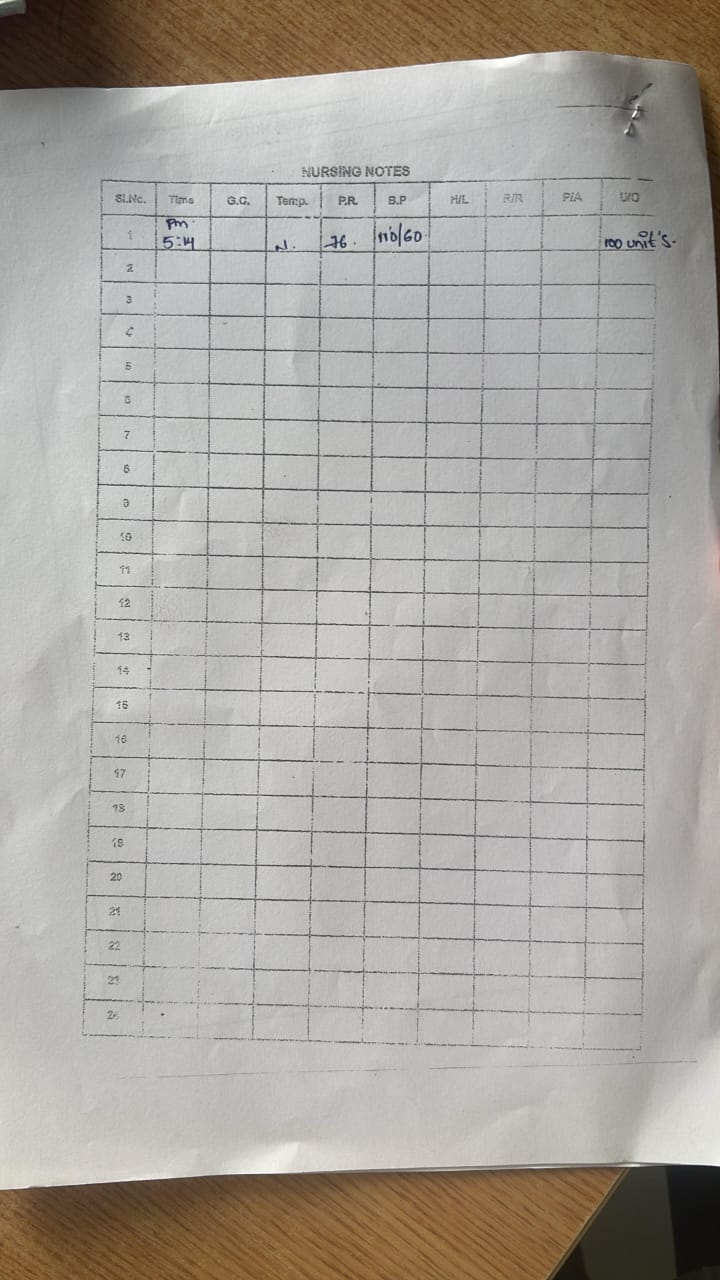 NURSING NOTES
Sl.No. Time G.C. Temp. P.R. B.P H/L R/R P/A U/O
1 Pm 5:14 N. 76. 110/60 100 unit's.
2
3
4
5
6
7
8
9
10
11
12
13
14
15
16
17
18
19
20
21
22
23
24